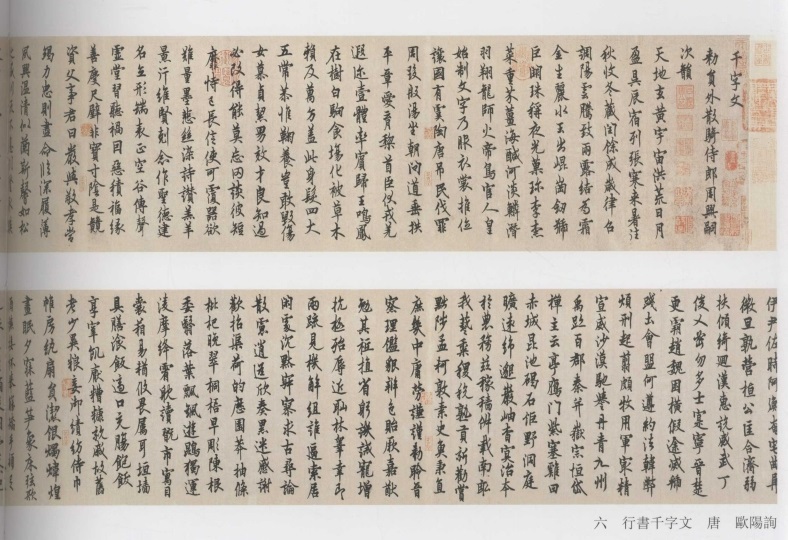 千字文
勅員外散騎侍郎周興嗣
次韻
天地玄黃宇宙洪荒日月
盈昃辰宿列張寒来暑往
秋收冬藏閏餘成歲律召
調陽雲騰致雨露結為霜
金生麗水玉出崐崗劒號
巨闕珠稱夜光菓珍李柰
菜重芥薑海醎河淡鱗潛
羽翔龍師火帝鳥官人皇
始制文字乃服衣裳推位
讓國有虞陶唐弔民伐罪
周發殷湯坐朝問道垂拱
平章愛育黎首臣伏戎羌
遐迩壹體率賓歸王鳴鳳
在樹白駒食塲化被草木
賴及萬方蓋此身髮四大
五常恭惟鞠養豈敢毀傷
女慕貞絜男效才良知過
必改得能莫忘罔談彼短
靡恃己長信使可覆器欲
難量墨悲絲染詩讃羔羊
景行維賢剋念作聖德建
名立形端表正空谷傳聲
虛堂習聽禍因惡積福緣
善慶尺璧非寶寸陰是競
資父事君曰嚴與敬孝當
竭力忠則盡命臨深履薄
夙興溫清似蘭斯馨如松
伊尹佐時阿衡奄宅曲阜
微旦孰營桓公匡合濟弱
扶傾綺迴漢惠說感武丁
俊乂密勿多士寔寧晉楚
更霸趙魏困橫假途滅虢
踐土會盟何遵約法韓弊
煩刑起翦頗牧用軍最精
宣威沙漠馳譽丹青九州
禹跡百郡秦并嶽宗恒岱
禪主云亭鴈門紫塞雞田
赤城昆池碣石鉅野洞庭
曠遠綿邈巖岫杳冥治本
於農務茲稼穡俶載南畝
我藝黍稷稅熟貢新勸賞
黜陟孟軻敦素史魚秉直
庶幾中庸勞謙謹勅聆音
察理鑑貌辨色貽厥嘉猷
勉其祗植省躬譏誡寵增
抗極殆辱近恥林皐幸即
兩疏見機解組誰逼索居
閑處沉默寂寥求古尋論
散慮逍遥欣奏累遣慼謝
歡招渠荷的歷園莽抽條
枇杷晚翠桐梧早彫陳根
委翳落葉飄颻遊鵾獨運
凌摩絳霄耽讀翫市寓目
囊箱易輶攸畏屬耳垣墻
具膳飡飯適口充腸飽飫
享宰飢厭糟糠親戚故舊
老少異粮妾御績紡侍巾
帷房紈扇員潔銀燭煒煌
晝眠夕寐藍笋象床弦歌
六 行書千字文 唐 歐陽詢